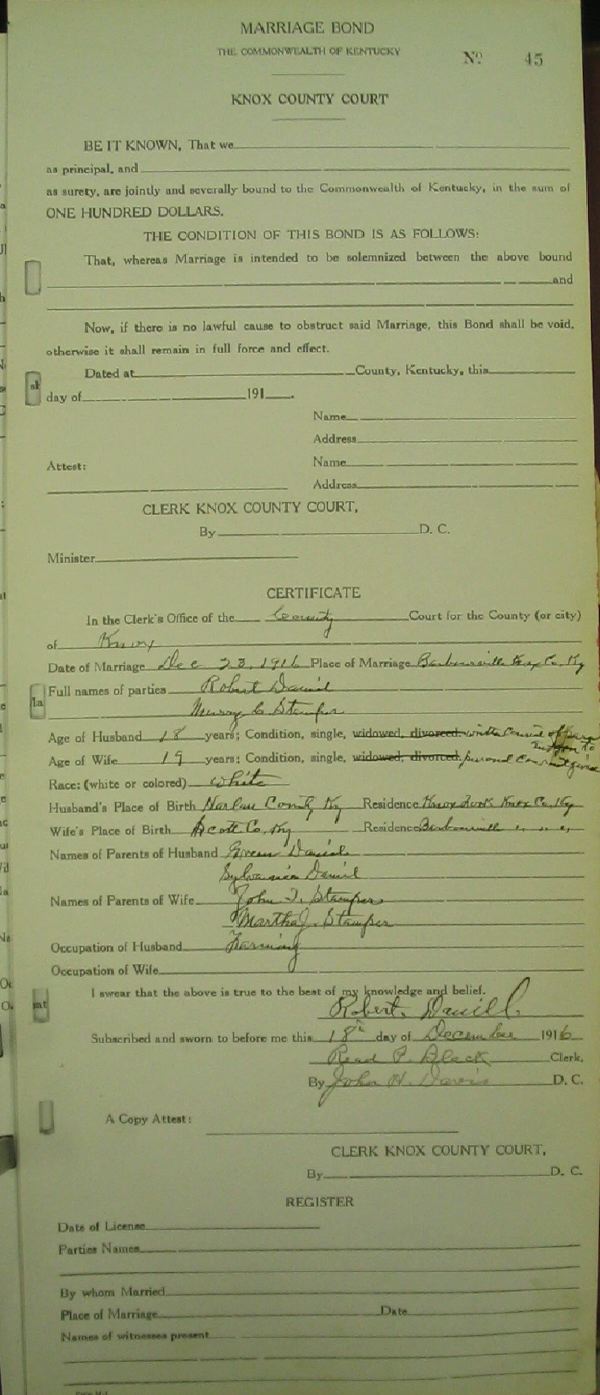 MARRIAGE BOND
THE COMMONWEALTH OF KENTUCKY
No. 45
KNOX COUNTY COURT
BE IT KNOWN, That we
as principal, and
as surety, are jointly and severally bound to the Commonwealth of Kentucky, in the sum of
ONE HUNDRED DOLLARS.
THE CONDITION OF THIS BOND IS AS FOLLOWS:
That, whereas Marriage is intended to be solemnized between the above bound
and
Now, if there is no lawful cause to obstruct said Marriage, this Bond shall be void,
otherwise it shall remain in full force and effect.
Dated at County, Kentucky, this
day of 191
Name
Address
Attest: Name
Address
CLERK KNOX COUNTY COURT,
By D. C.
Minister
CERTIFICATE
In the Clerk's Office of the County Court for the County (or city)
of Knox
Date of Marriage Dec 23, 1916 Place of Marriage Barbourville Knox Co. Ky
Full names of parties Robert Daniel
Stamper
Age of Husband 18 years; Condition, single, widowed, divorced,
Age of Wife 19 years; Condition, single, widowed, divorced, personal consent given
Race: (white or colored) White
Husband's Place of Birth Harlan County Ky Residence Knox Fork Knox Co. Ky
Wife's Place of Birth Scott Co. Ky Residence Barbourville " " "
Names of Parents of Husband Green Daniel
Daniel
Names of Parents of Wife John T. Stamper
Martha J. Stamper
Occupation of Husband Farming
Occupation of Wife
I swear that the above is true to the best of my knowledge and belief.
Robert Daniell
Subscribed and sworn to before me this 18th day of December 1916
Read P. Black Clerk,
By John H. Davis D. C.
A Copy Attest:
CLERK KNOX COUNTY COURT,
By D. C.
REGISTER
Date of License
Parties Names
By whom Married
Place of Marriage Date
Names of witnesses present